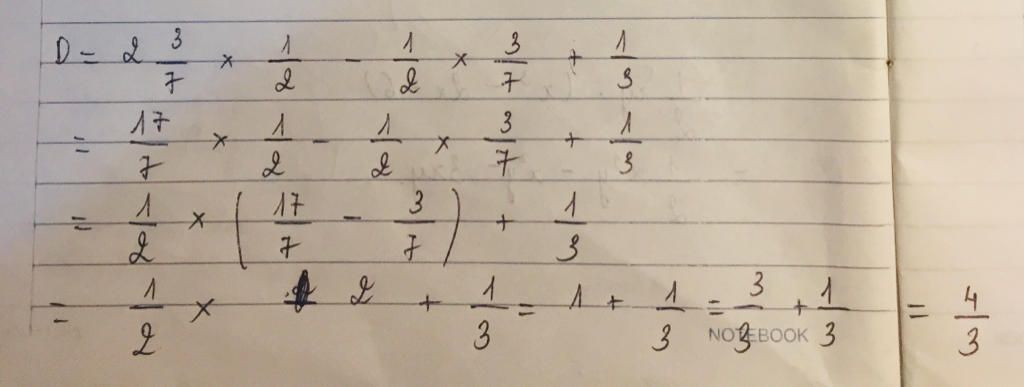 D = 2 3/7 × 1/2 - 1/2 × 3/7 + 1/3
= 17/7 × 1/2 - 1/2 × 3/7 + 1/3
= 1/2 × (17/7 - 3/7) + 1/3
= 1/2 × 2 + 1/3 = 1 + 1/3 = 3/3 + 1/3 = 4/3
NOTEBOOK